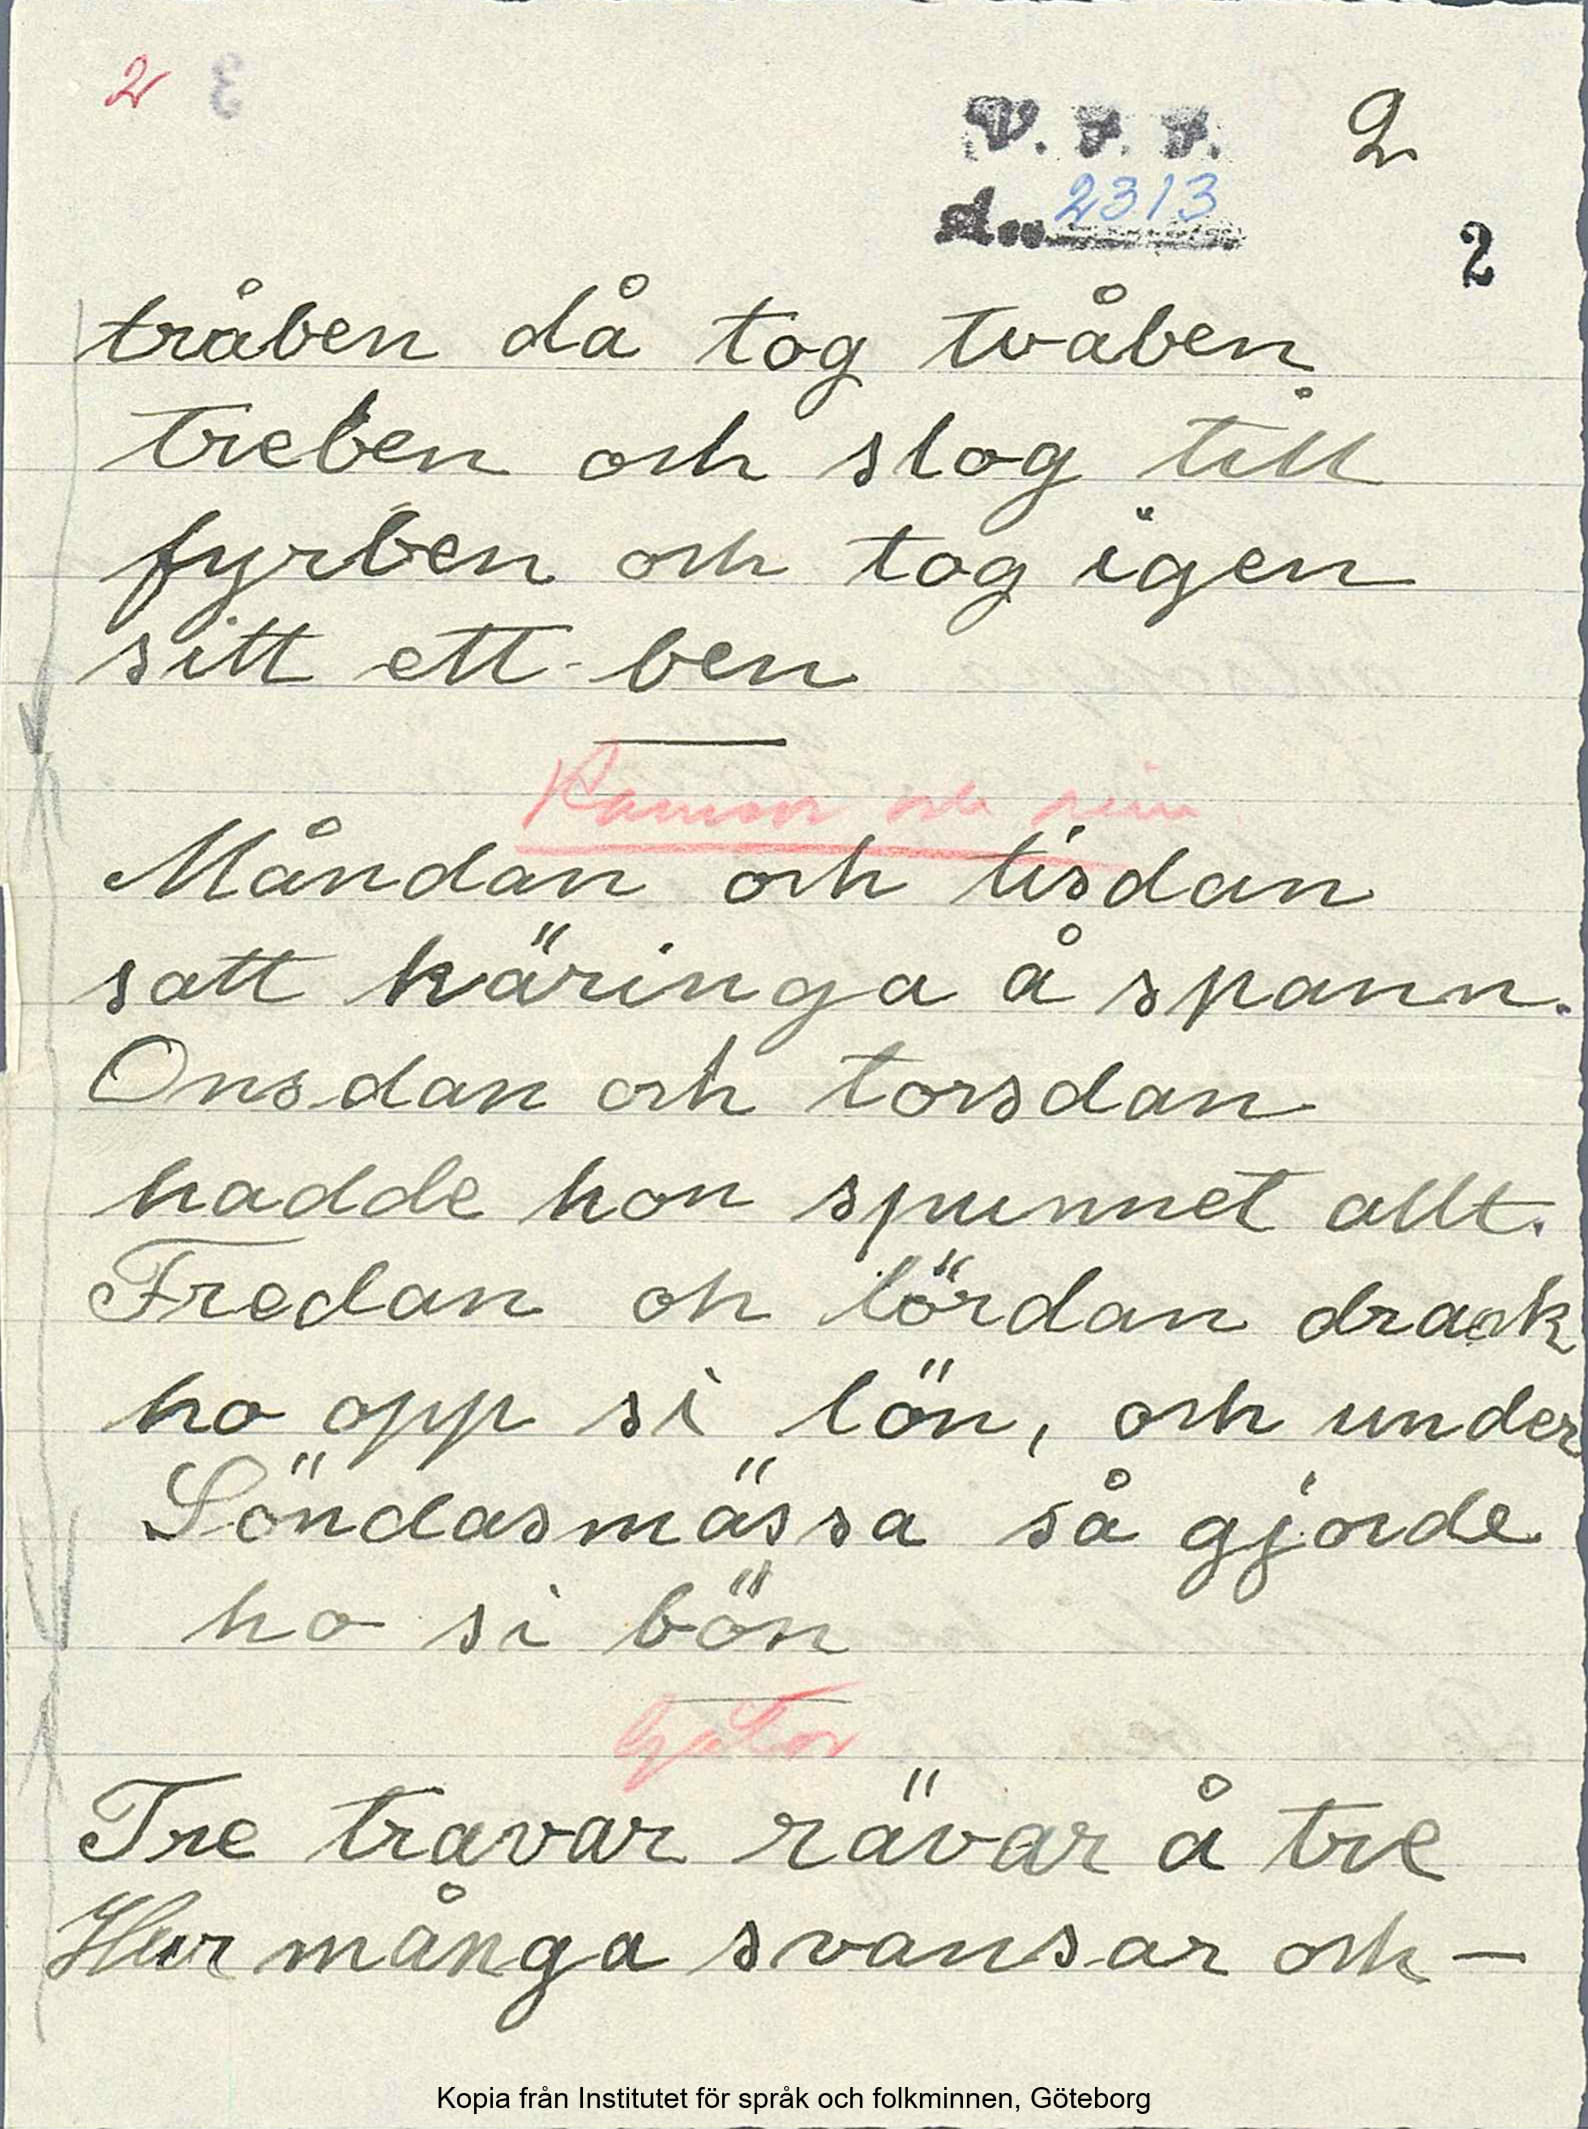 2 3
V. F. F. 2
d... 2313
2
tråben då tog tvåben
treben och slog till
fyrben och tog igen
sitt ett ben
Ramsor och rim
Måndan och tisdan
satt käringa å spann.
Onsdan och torsdan
hadde hon spunnet allt.
Fredan oh lördan drack
ho opp si lön, och under
Söndasmässa så gjorde
ho si bön
Gåtor
Tre travar rävar å tre
Hur många svansar och —
Kopia från Institutet för språk och folkminnen, Göteborg